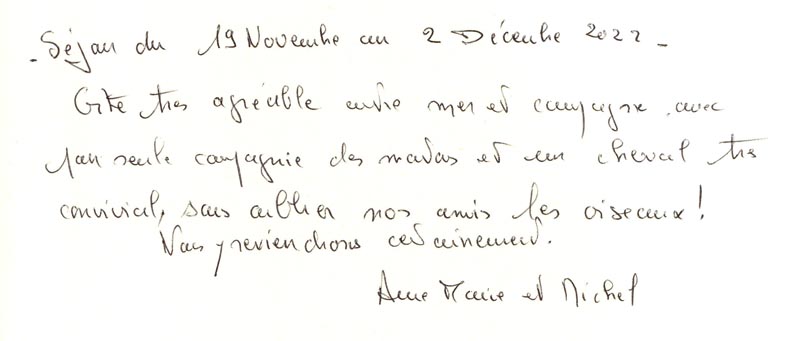 - Séjour du 19 Novembre au 2 Décembre 2022 -
Gîte très agréable entre mer et campagne, avec
pour seule compagnie des et un cheval très
convivial, sans oublier nos amis les oiseaux !
Nous y reviendrons certainement.
Anne Marie et Michel